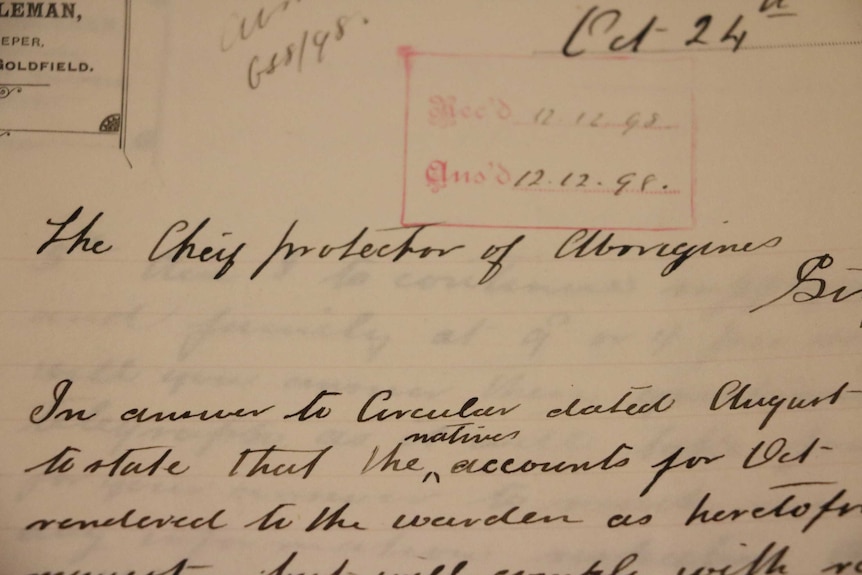 LEMAN,
EPER,
GOLDFIELD.
658/98.
Oct 24th
Rec'd 12.12.98.
Ans'd 12.12.98.
The Cheif protector of Aborigines
Si
In answer to Circular dated August
to state that the natives accounts for Oct
rendered to the warden as heretofr
but will comply with